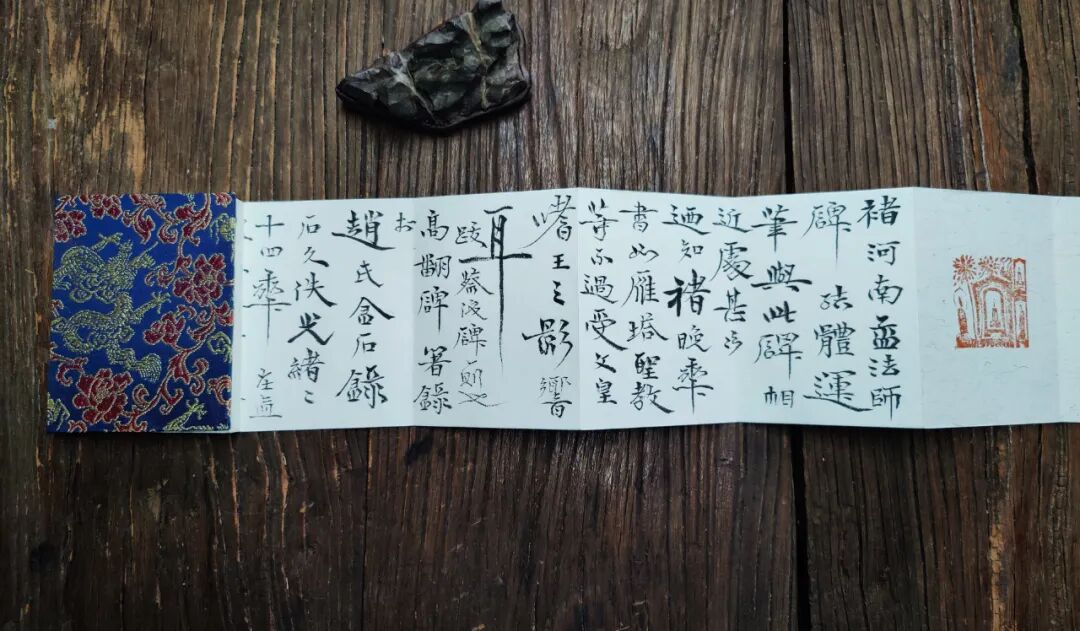 褚河南孟法師
碑结體運
筆與此碑相
近處甚多
迺知褚晚秊
書如雁塔聖教
等不過受文皇
嗜王之影響
耳
跋蔡俊碑
高翻碑箸錄
於
趙氏金石錄
石久佚光緒二
十四秊